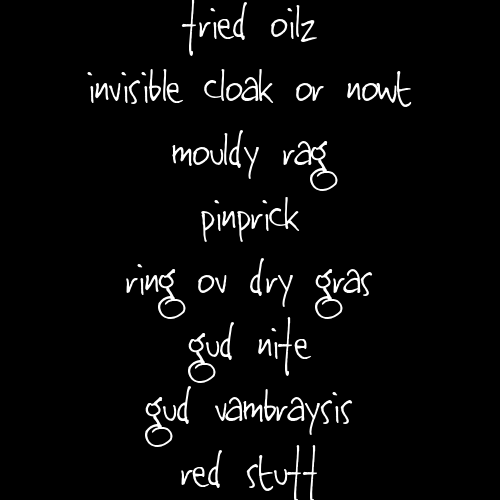 fried oilz
invisible cloak or nowt
mouldy rag
pinprick
ring ov dry gras
gud nite
gud vambraysis
red stuff